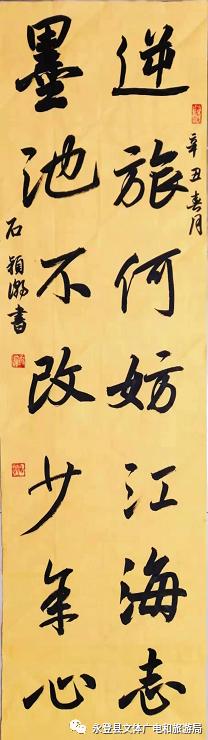 逆旅何妨江海志
辛丑春月
墨池不改少年心
石穎書
永登县文体广电和旅游局